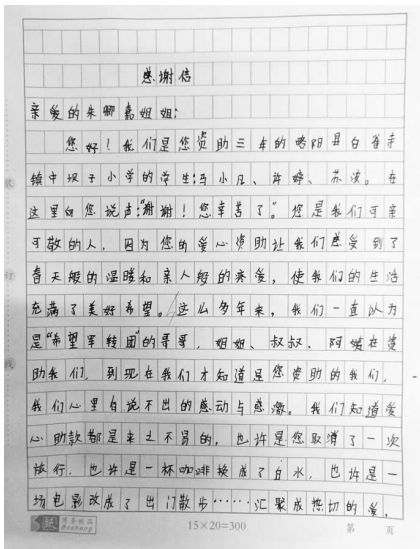 感谢信
亲爱的朱娜嘉姐姐:
您好！我们是您资助三年的略阳县白雀寺
镇中坝子小学的学生:马小凡、许婷、苏波。在
这里向您说声:“谢谢！您辛苦了”。您是我们可亲
可敬的人，因为您的爱心资助让我们感受到了
春天般的温暖和亲人般的疼爱，使我们的生活
充满了美好希望。这么多年来，我们一直以为
是“希望军转团”的哥哥、姐姐、叔叔、阿姨在资
助我们，到现在我们才知道是您资助的我们，
我们心里有说不出的感动与感激。我们知道爱
心助款都是来之不易的，也许是您取消了一次
旅行，也许是一杯咖啡换成了白水，也许是一
场电影改成了出门散步……汇聚成热切的爱，
15×20=300 第 页